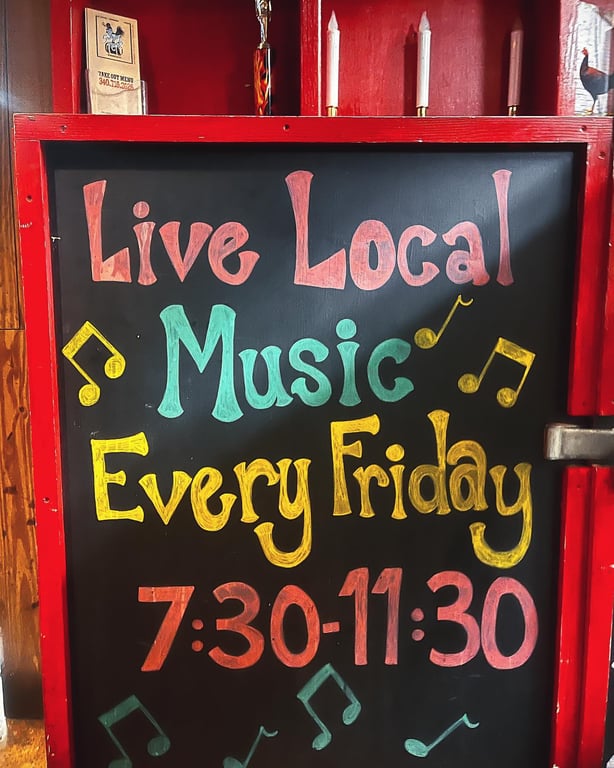 TAKE OUT MENU
Live Local
Music
Every Friday
7:30-11:30